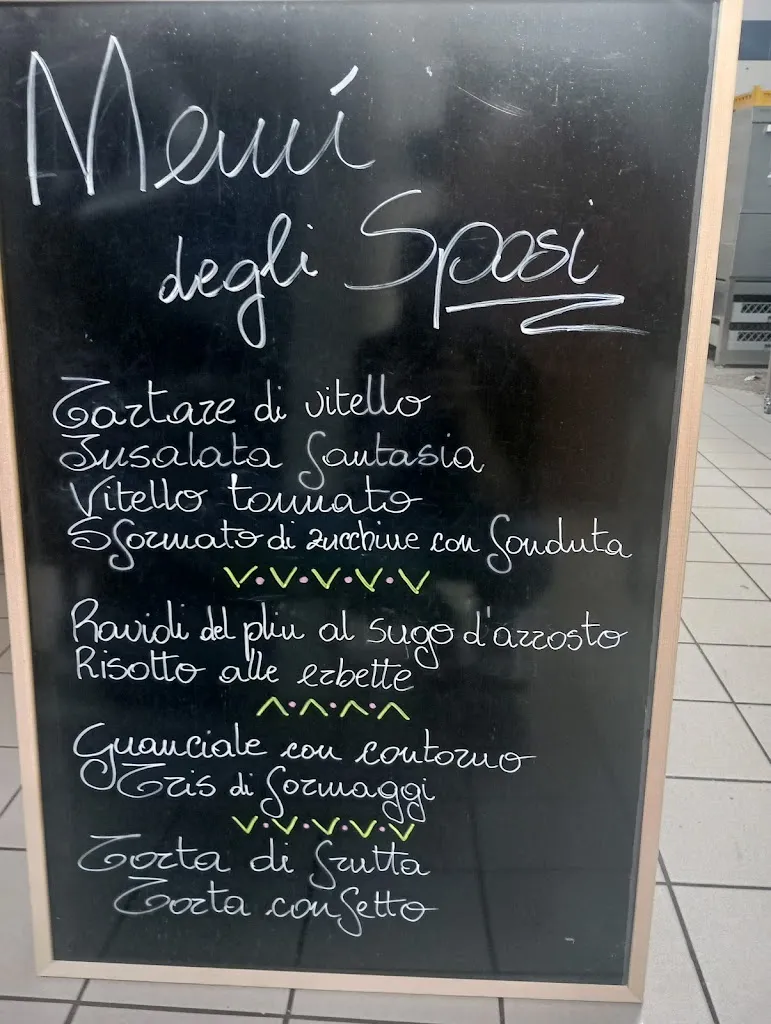 Menú
degli Sposi
Tartare di vitello
Insalata fantasia
Vitello tonnato
Sformato di zucchine con fonduta
Ravioli del plin al sugo d'arrosto
Risotto alle erbette
Guanciale con contorno
Tris di formaggi
Torta di frutta
Torta confetto